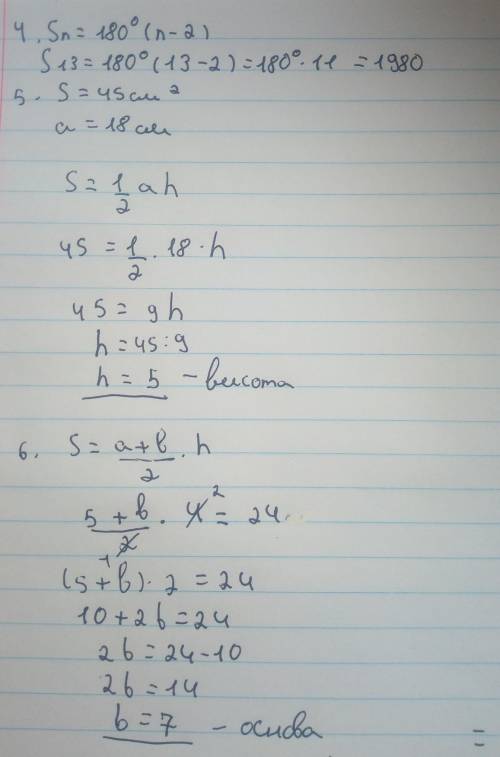 4. Sn = 180° (n - 2)
S13 = 180° (13 - 2) = 180° · 11 = 1980
5. S = 45 см²
a = 18 см
S = 1/2 ah
45 = 1/2 · 18 · h
45 = 9h
h = 45 : 9
h = 5 - висота
6. S = a + b/2 · h
5 + b/2 · 4 = 24
(5 + b) · 2 = 24
10 + 2b = 24
2b = 24 - 10
2b = 14
b = 7 - основа
=